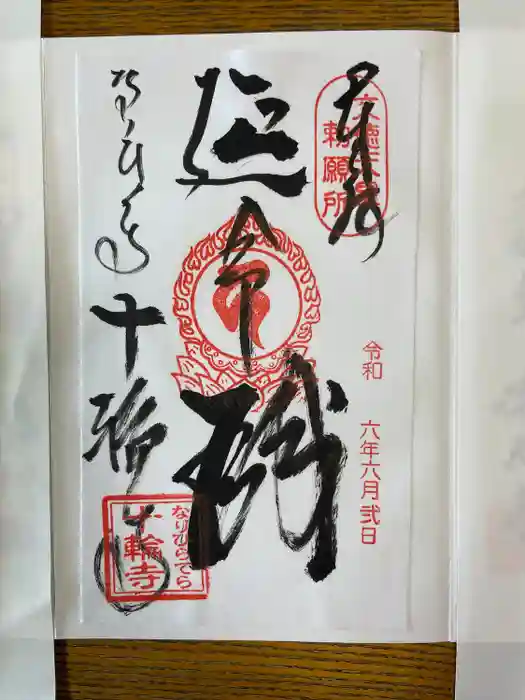 奉拝
文徳天皇
勅願所
令和 六年六月弐日
延命
なりひら
十輪寺
なりひらてら
十輪寺